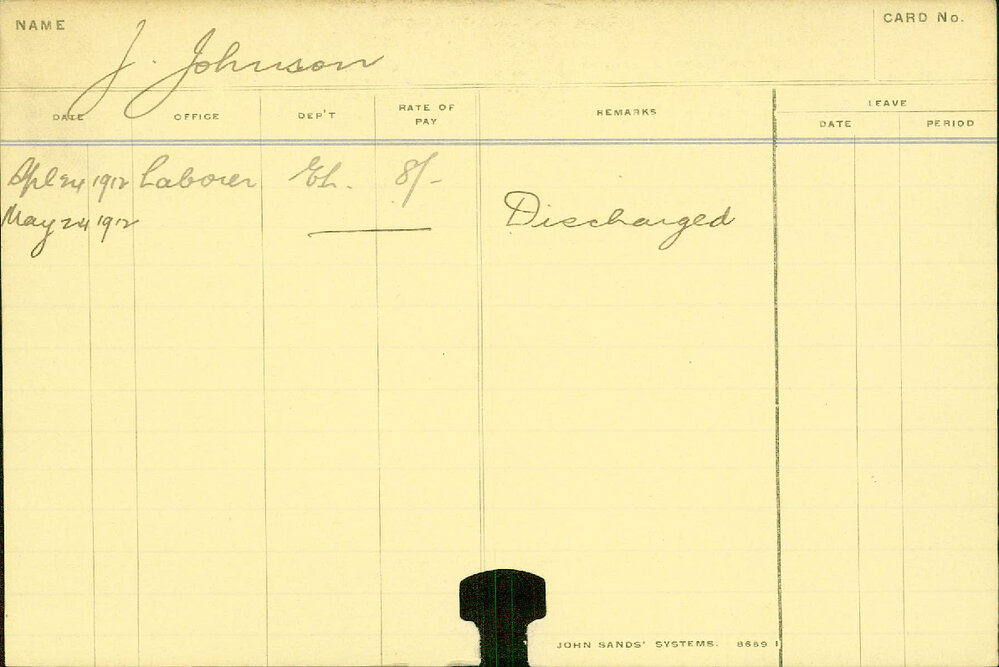 NAME
CARD No.
J. Johnson
DATE OFFICE DEP'T RATE OF PAY REMARKS LEAVE
DATE PERIOD
Apl 24 1912 Laborer 8/-
May 24 1912 Discharged
JOHN SANDS' SYSTEMS. 8689